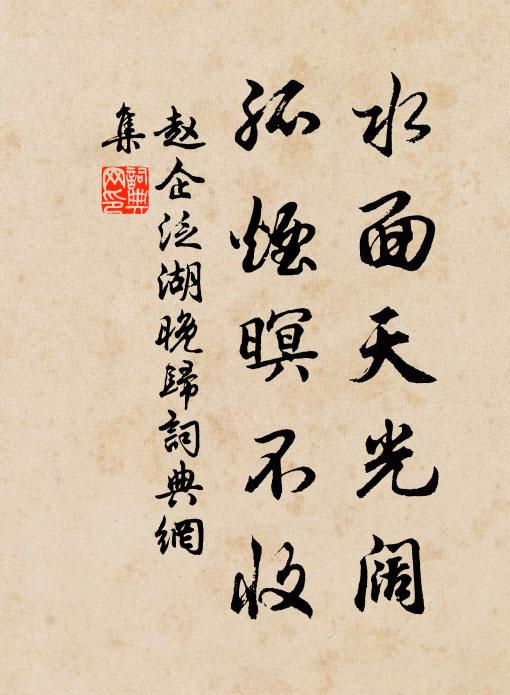 水面天光阔
孤烟暝不收
赵企泛湖晚歸詞典網
集
詞典
网印